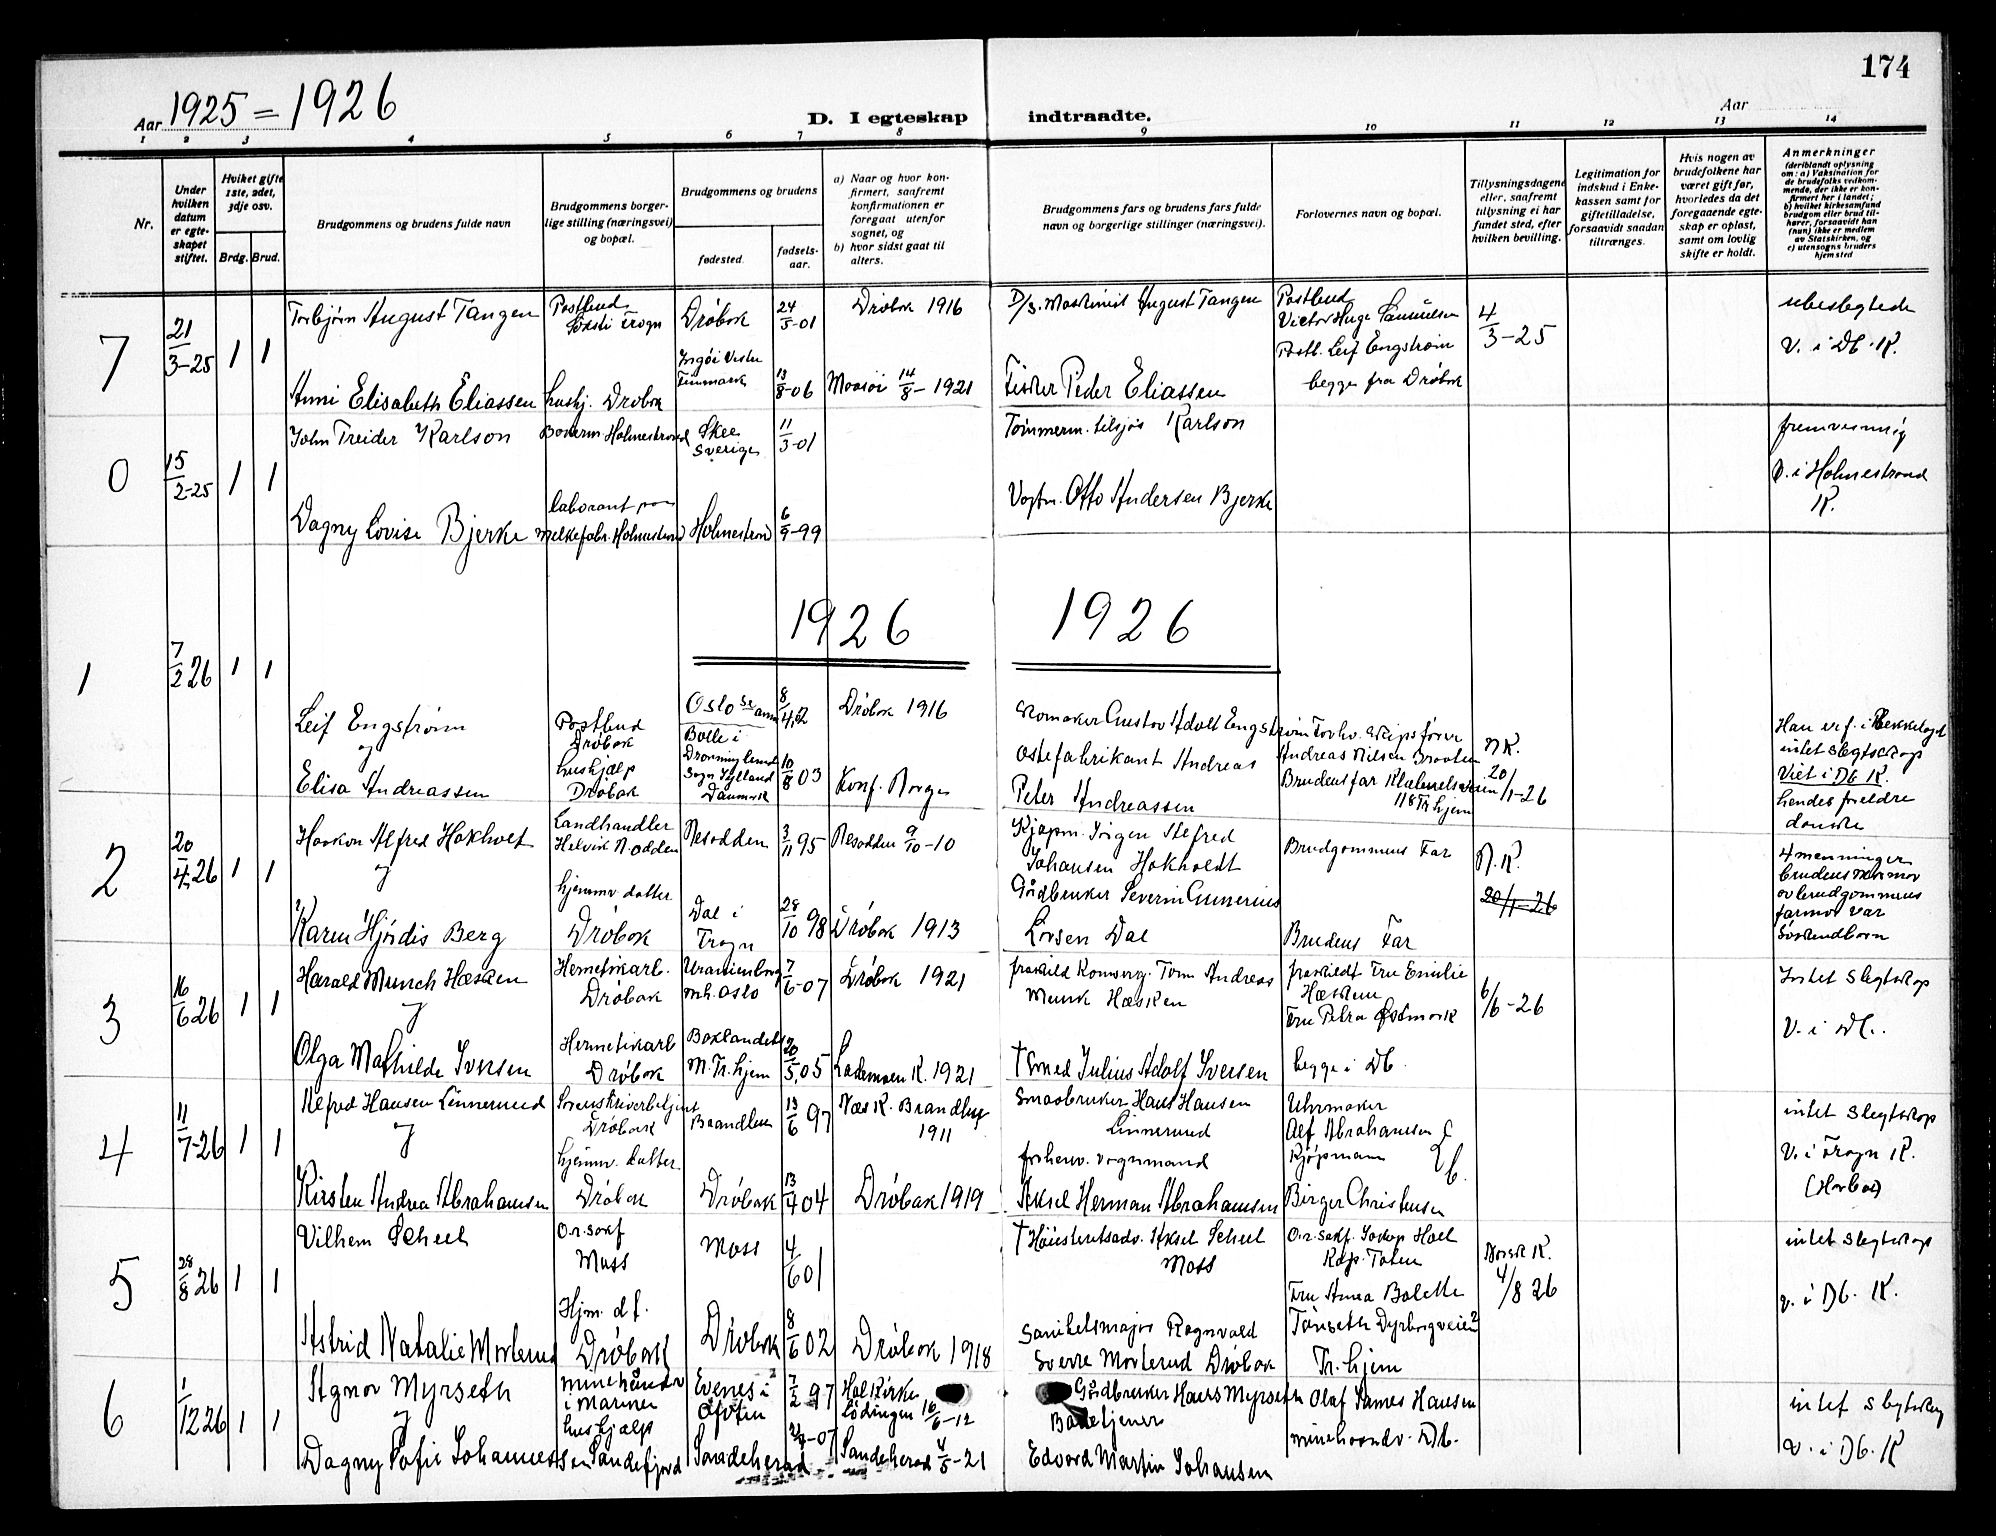 174
Aar 1925 = 1926
D. I egteskap indtraadte.
Aar
1 2 3 4 5 6 7 8 9 10 11 12 13 14
Nr.
Under hvilken datum er egteskapet stiftet.
Hviket gifte 1ste, 2det, 3dje osv.
Brdg. Brud.
Brudgommens og brudens fulde navn
Brudgommens borgerlige stilling (næringsvei) og bopæl.
Brudgommens og brudens
fødested.
fødselsaar.
a) Naar og hvor konfirmert, saafremt konfirmationen er foregaat utenfor sognet, og
b) hvor sidst gaat til alters.
Brudgommens fars og brudens fars fulde navn og borgerlige stillinger (næringsvei).
Forlovernes navn og bopæl.
Tillysningsdagene eller, saafremt tillysning ei har fundet sted, efter hvilken bevilling.
Legitimation for indskud i Enkekassen samt for giftetilladelse, forsaavidt saadan tiltrænges.
Hvis nogen av brudefolkene har været gift før, hvorledes da det foregaaende egteskap er opløst, samt om lovlig skifte er holdt.
Anmerkninger
(deriblandt oplysning om: a) Vaksination for de brudefolks vedkommende, der ikke er konfirmert her i landet; b) hvilket kirkesamfund brudgom eller brud tilhører, forsaavidt han (hun) ikke er medlem av Statskirken, og c) utensogns bruders hjemsted
7 21/3-25 1 1
Torbjørn August Tangen Postbud Drøbak 24/5-01 Drøbak 1916 D/s. Maskinist August Tangen Postbud Victor Hugo Samuelsen 4/3-25 ubeslegtede
Postb. Leif Engstrøm v. i Db. K.
Anni Elisabeth Eliassen hushj. Drøbak Finmark 13/8-06 Maasøi 14/8-1921 Fisker Peder Eliassen begge fra Drøbak
0 15/2-25 1 1
John Treider Karlson Holmestrand Skee Sverige 11/3-01 Tømmerm. Karlson
V. i Holmestrand K.
Dagny Lovise Bjerke laborant paa melkefabr. Holmestrand Holmestrand 6/9-99 Otto Andersen Bjerke
1926 1926
1 7/2 26 1 1
Leif Engstrøm Postbud Drøbak Oslo 8/4 02 Drøbak 1916 Skomaker Gustav Adolf Engstrøm N. K.
og
Elisa Andreassen hushjælp Drøbak Bolle i Dronninglund Sogn Jylland Danmark 10/8 03 Konf. Borge Ostefabrikant Andreas Peter Andreassen Andreas Nilsen Braaten Brudens far 20/1-26
intet slegtskap
Viet i Db K.
hendes forældre danske
2 20/4 26 1 1
Haakon Alfred Hokholt Landhandler Helvik N.odden Nesodden 3/11 95 Nesodden 9/10-10 Kjøpm. Jørgen Alfred Johansen Hokholdt Brudgommens Far N. K.
og
20/1-26
Karen Hjørdis Berg hjemmv. datter Drøbak Dal i Frogn 28/10 98 Drøbak 1913 Gårdbruker Severin Gunnerius Larsen Dal Brudens Far
4 menninger brudens mormor og brudgommens farmor var Søskendbarn
3 16/6 26 1 1
Harald Munch Hæsken Hermetikarb. Drøbak Uranienborg mh. Oslo 7/6-07 Drøbak 1921 fraskild Andreas Munk Hæsken fraskildt Fru Emilie Hæsken 6/6-26 Intet Slegtskap
og
Fru Petra Østmork V. i Db.
Olga Mathilde Iversen Hermetikarb Drøbak Baklandet M. Tr.hjem 20/5 05 Lademoen K. 1921 † Smed Julius Adolf Iversen begge i Db.
4 11/7-26 1 1
Alfred Hansen Linnerud Drøbak Brandbu 13/6 97 Næs K. Brandbu 1911 Smaabruker Hans Hansen Linnerud Uhrmaker Alf Abrahamsen intet Slegtskap
og
V. i Frogn K.
Kirsten Andrea Abrahamsen hjemmv. datter Drøbak Drøbak 13/4 04 Drøbak 1919 forhenv. vognmand Aksel Herman Abrahamsen Kjøpmann Birger Christensen
5 28/8 26 1 1
Vilhem Scheel O.r.sakf Moss Moss 4/6 01 † Høiesteretsadv. Aksel Scheel Moss O.r. sakf. Jakop Hoel Kap. Toten Norsk K. 4/8 26 intet Slegtskap
v. i Db. K.
Astrid Natalie Morterud Hjm. dt. Drøbak Drøbak 8/6 02 Drøbak 1918 Sanitetsmajor Ragnvald Sverre Morterud Drøbak Fru Anna Bolette Tønseth Dyrborgveien 2 Tr.hjem
6 1/12 26 1 1
Agnar Myrseth minehåndv i Marinen Evenes i Ofoten 7/2 97 Hol Kirke Lødingen 16/6-12 Gårdbruker Hans Myrseth Olaf James Hansen minehaandv. Db. intet Slegtskap
og
V. i Db. K
Dagny Sofie Johannessen hushjælp Sandefjord Sandeherad -07 Sandeherad 4/5-21 Badetjener Edvard Martin Johansen